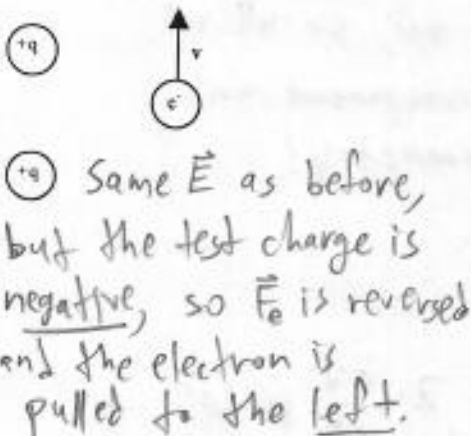 +q
v
e-
+q Same E⃗ as before,
but the test charge is
negative, so F⃗e is reversed
and the electron is
pulled to the left.